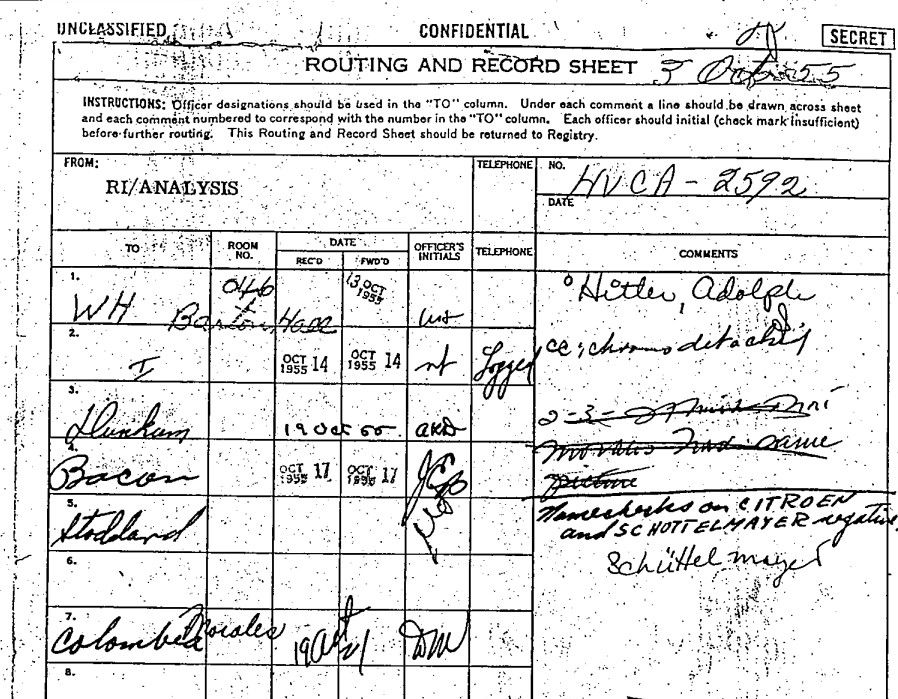 UNCLASSIFIED
CONFIDENTIAL
SECRET
ROUTING AND RECORD SHEET
5 Oct 55
INSTRUCTIONS: Officer designations should be used in the "TO" column. Under each comment a line should be drawn across sheet
and each comment numbered to correspond with the number in the "TO" column. Each officer should initial (check mark insufficient)
before further routing. This Routing and Record Sheet should be returned to Registry.
FROM:
RI/ANALYSIS
TELEPHONE
NO.
HVCA-2592
DATE
TO
ROOM NO.
DATE
REC'D
FWD'D
OFFICER'S INITIALS
TELEPHONE
COMMENTS
1.
WH Barton Hall
046
13 OCT 1955
Hitler, Adolph
2.
I
OCT 1955 14
OCT 1955 14
Logged
cc: chrono detached
3.
Dunham
19 Oct 55
AKD
2-3-
had same
picture
4.
Bacon
OCT 17 1955
OCT 17 1955
5.
Stoddard
Namechecks on CITROEN
and SCHOTTELMAYER negative
Schüttelmayer
6.
7.
Colombia Morales
19 Oct
21
DM
8.